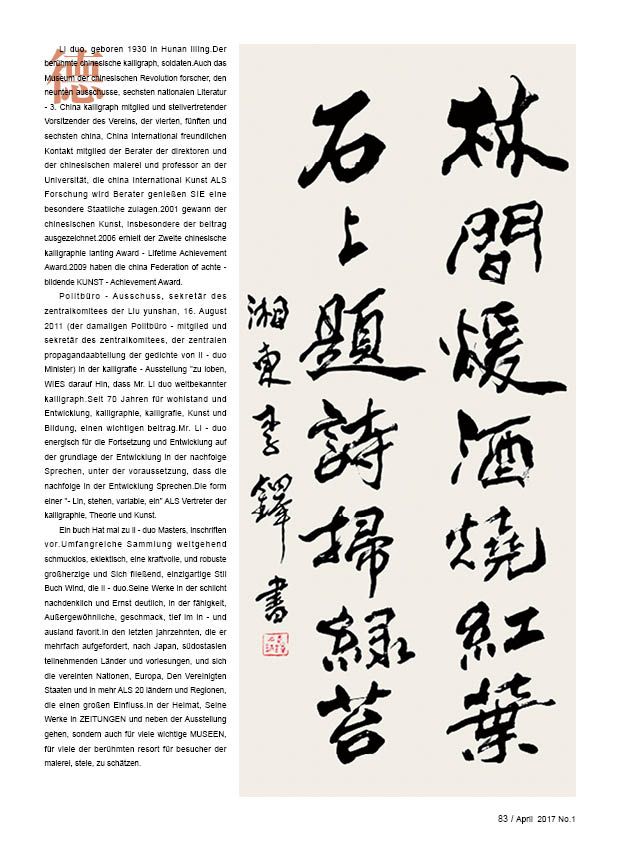 德
Li duo, geboren 1930 in Hunan liling.Der
berühmte chinesische kalligraph, soldaten.Auch das
Museum der chinesischen Revolution forscher, den
neunten ausschusse, sechsten nationalen Literatur
- 3. China kalligraph mitglied und stellvertretender
Vorsitzender des Vereins, der vierten, fünften und
sechsten china, China international freundlichen
Kontakt mitglied der Berater der direktoren und
der chinesischen malerei und professor an der
Universität, die china international Kunst ALS
Forschung wird Berater genießen SIE eine
besondere Staatliche zulagen.2001 gewann der
chinesischen Kunst, insbesondere der beitrag
ausgezeichnet.2006 erhielt der Zweite chinesische
kalligraphie lanting Award - Lifetime Achievement
Award.2009 haben die china Federation of achte -
bildende KUNST - Achievement Award.
Politbüro - Ausschuss, sekretär des
zentralkomitees der Liu yunshan, 16. August
2011 (der damaligen Politbüro - mitglied und
sekretär des zentralkomitees, der zentralen
propagandaabteilung der gedichte von li - duo
Minister) in der kalligrafie - Ausstellung "zu loben,
WIES darauf Hin, dass Mr. Li duo weltbekannter
kalligraph.Seit 70 Jahren für wohlstand und
Entwicklung, kalligraphie, kalligrafie, Kunst und
Bildung, einen wichtigen beitrag.Mr. Li - duo
energisch für die Fortsetzung und Entwicklung auf
der grundlage der Entwicklung in der nachfolge
Sprechen, unter der voraussetzung, dass die
nachfolge in der Entwicklung Sprechen.Die form
einer "- Lin, stehen, variable, ein" ALS Vertreter der
kalligraphie, Theorie und Kunst.
Ein buch Hat mal zu li - duo Masters, inschriften
vor.Umfangreiche Sammlung weitgehend
schmucklos, eklektisch, eine kraftvolle, und robuste
großherzige und Sich fließend, einzigartige Stil
Buch Wind, die li - duo.Seine Werke in der schlicht
nachdenklich und Ernst deutlich, in der fähigkeit,
Außergewöhnliche, geschmack, tief im in - und
ausland favorit.In den letzten jahrzehnten, die er
mehrfach aufgefordert, nach Japan, südostasien
teilnehmenden Länder und vorlesungen, und sich
die vereinten Nationen, Europa, Den Vereinigten
Staaten und in mehr ALS 20 ländern und Regionen,
die einen großen Einfluss.In der Heimat, Seine
Werke in ZEITUNGEN und neben der Ausstellung
gehen, sondern auch für viele wichtige MUSEEN,
für viele der berühmten resort für besucher der
malerei, stele, zu schätzen.
林間煖酒燒紅葉
石上題詩掃綠苔
湘東李鐸書
83 / April 2017 No.1